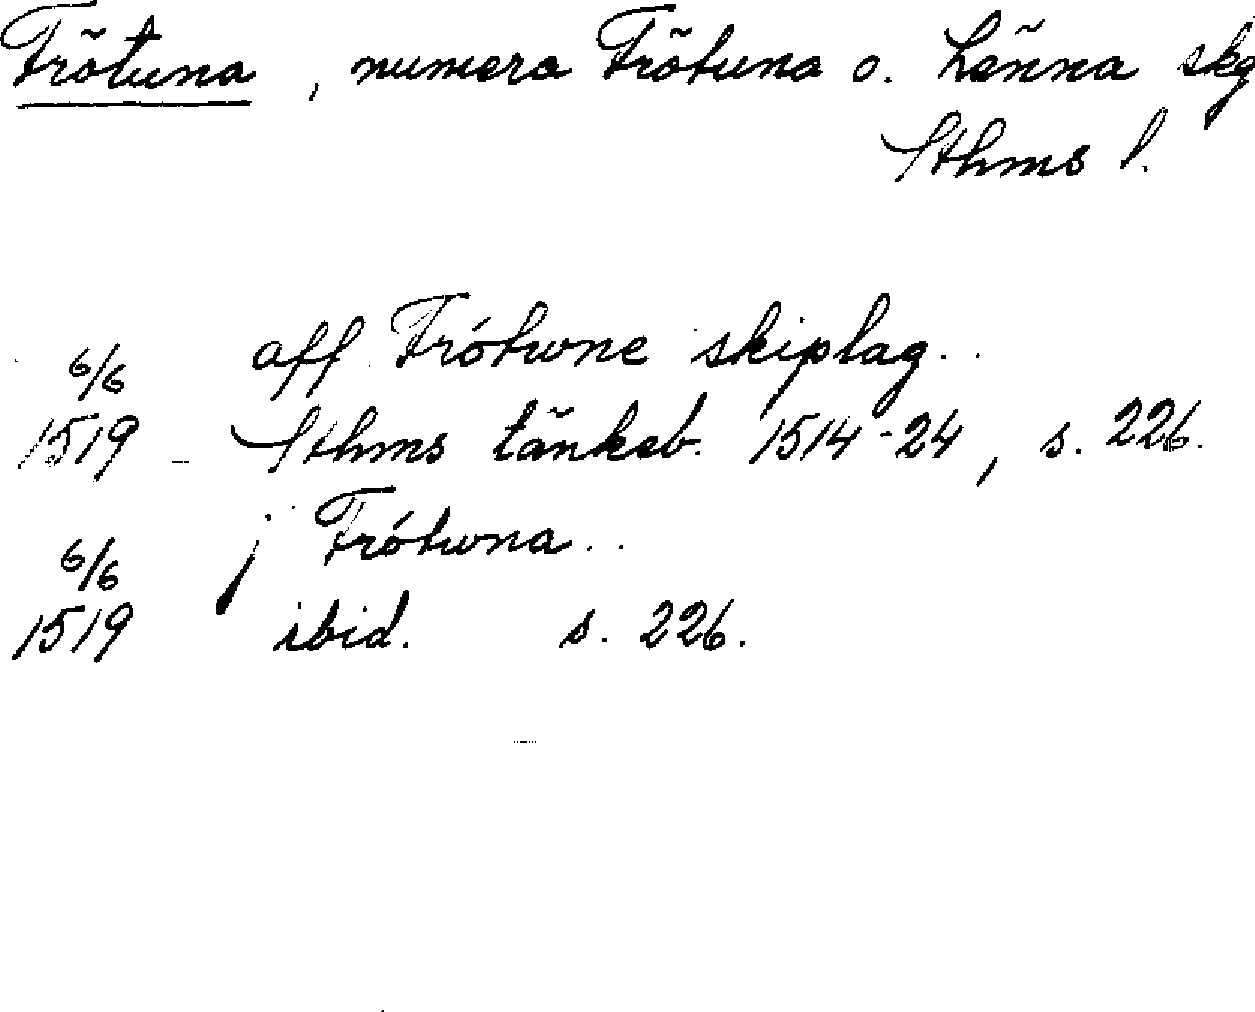 Frötuna, numera Frötuna o. Länna skg
Sthms l.
6/6 aff Frótwne skiplag..
1519 - Sthms tänkeb. 1514-24, s. 226.
6/6 j Frótwna..
1519 ibid. s. 226.